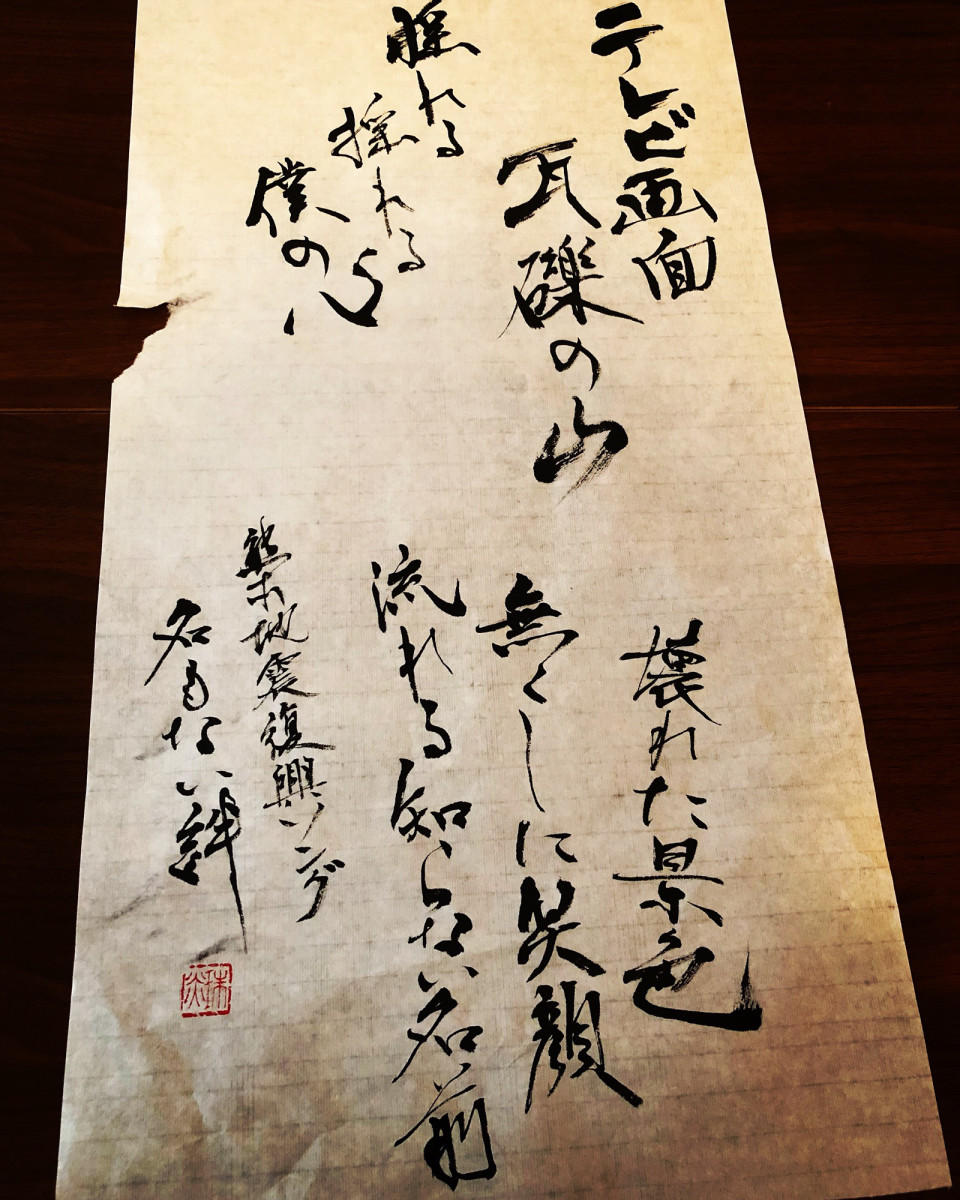 テレビ画面
壊れた景色
瓦礫の山
無くした笑顔
揺れる
揺れる
僕の心
流れる知らない名前
熊本地震復興ソング
名もない絆